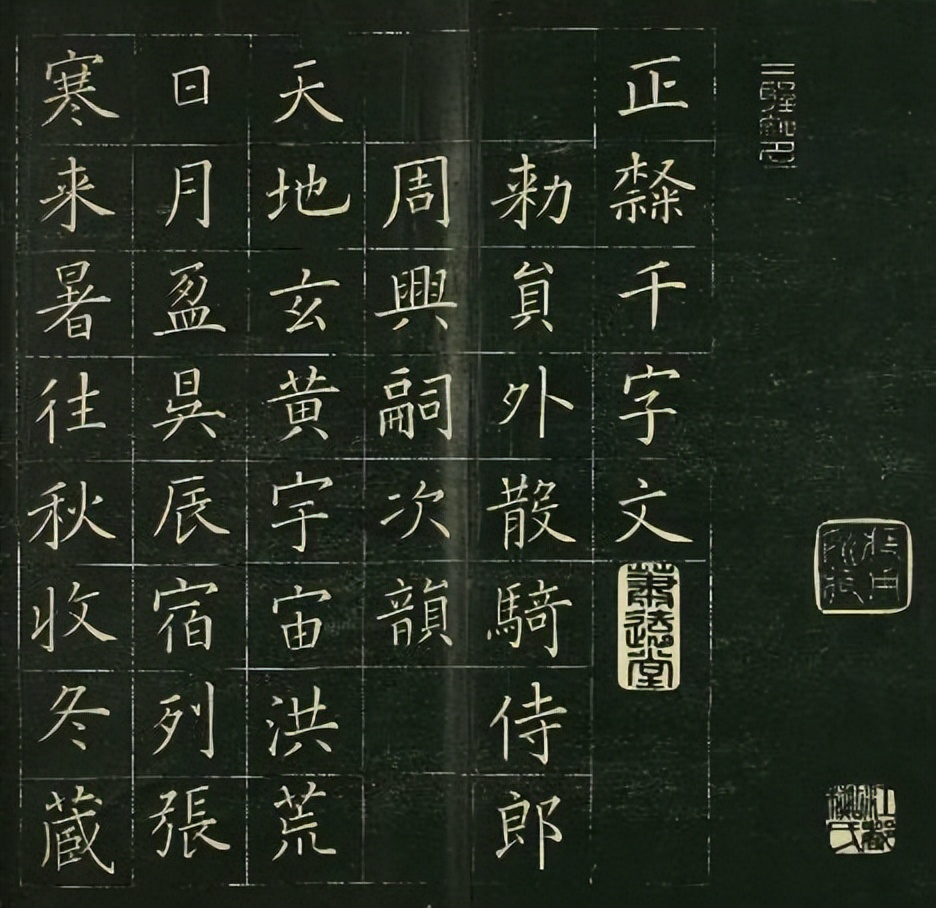 正千字文
勑貟外散騎侍郎
周興嗣次韻
天地玄黄宇宙洪荒
日月盈昗辰宿列張
寒来暑往秋收冬蔵